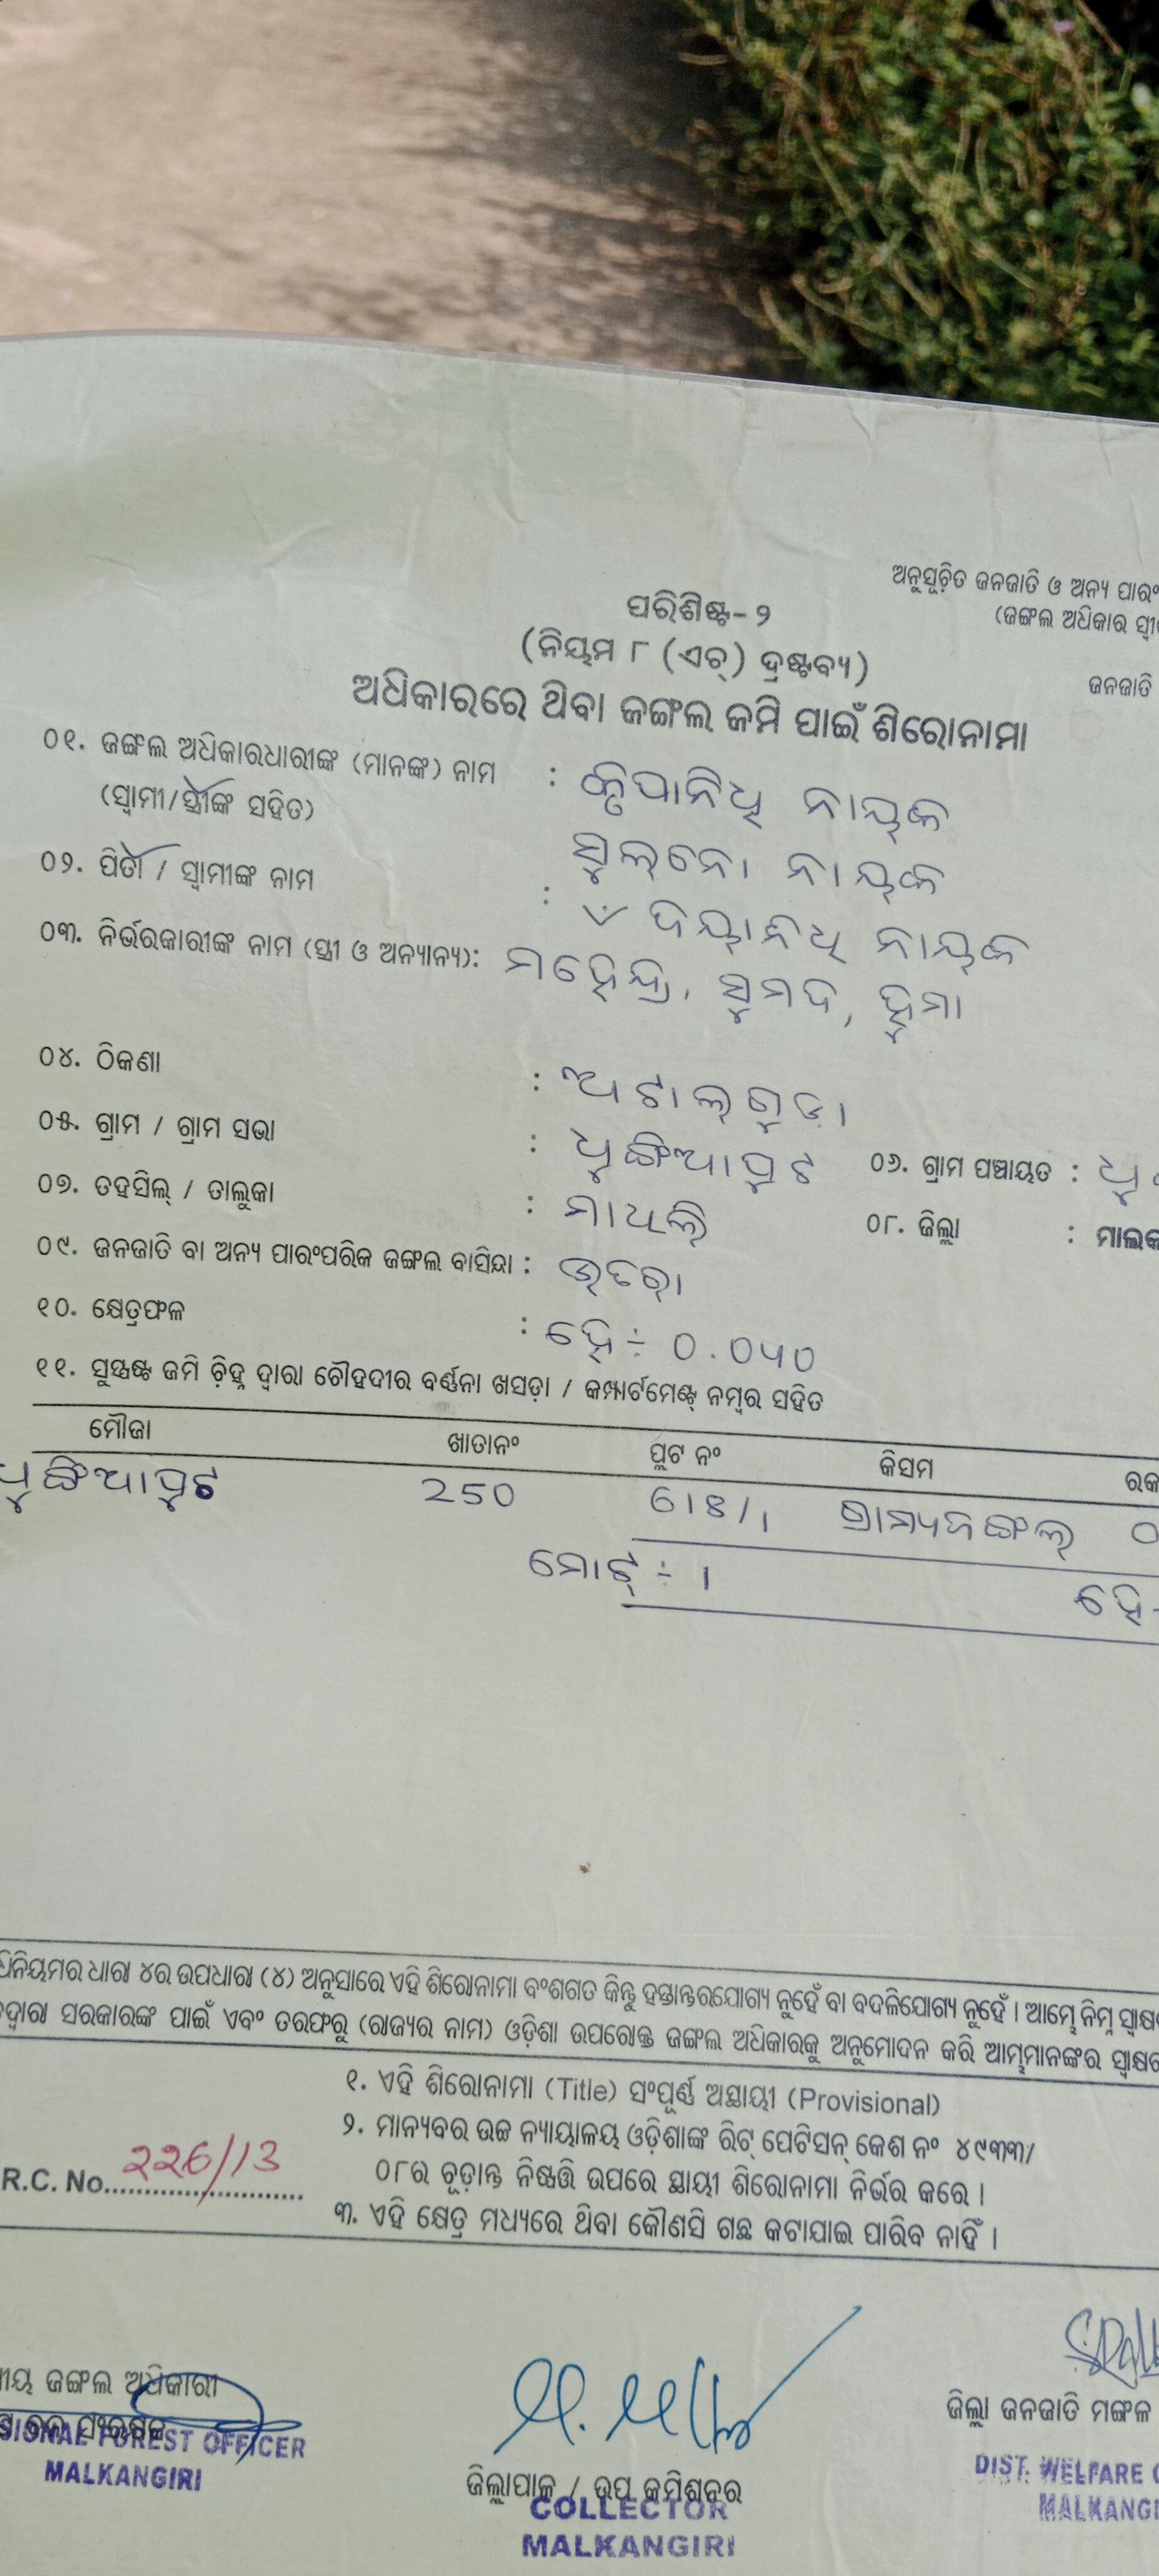 ଅନୁସୂଚିତ ଜନଜାତି ଓ ଅନ୍ୟ
(ଜଙ୍ଗଲ ଅଧିକାର
ଜନଜାତି
ପରିଶିଷ୍ଟ-୨
(ନିୟମ ୮ (ଏଚ୍) ଦ୍ରଷ୍ଟବ୍ୟ)
ଅଧିକାରରେ ଥିବା ଜଙ୍ଗଲ ଜମି ପାଇଁ ଶିରୋନାମା
୦୧. ଜଙ୍ଗଲ ଅଧିକାରଧାରୀଙ୍କ (ମାନଙ୍କ) ନାମ : କୃପାନିଧି ନାୟକ
(ସ୍ୱାମୀ/ସ୍ତ୍ରୀଙ୍କ ସହିତ) ନାୟକ
୦୨. ପିତା / ସ୍ୱାମୀଙ୍କ ନାମ : ଦୟାନିଧି ନାୟକ
୦୩. ନିର୍ଭରକାରୀଙ୍କ ନାମ (ସ୍ତ୍ରୀ ଓ ଅନ୍ୟାନ୍ୟ): ମହେନ୍ଦ୍ର,
୦୪. ଠିକଣା : ଅଟାଲଗୁଡା
୦୫. ଗ୍ରାମ / ଗ୍ରାମ ସଭା : ଧୁଙ୍ଗିଆପୁଟ ୦୬. ଗ୍ରାମ ପଞ୍ଚାୟତ :
୦୭. ତହସିଲ୍ / ତାଲୁକା : ମାଥିଲି ୦୮. ଜିଲ୍ଲା :
୦୯. ଜନଜାତି ବା ଅନ୍ୟ ପାରଂପରିକ ଜଙ୍ଗଲ ବାସିନ୍ଦା :
୧୦. କ୍ଷେତ୍ରଫଳ : ହେ ÷ ୦.୦୪୦
୧୧. ସୁସ୍ପଷ୍ଟ ଜମି ଚିହ୍ନ ଦ୍ୱାରା ଚୌହଦୀର ବର୍ଣ୍ଣନା ଖସଡ଼ା / କମ୍ପାର୍ଟମେଣ୍ଟ୍ ନମ୍ବର ସହିତ
ମୌଜା ଖାତାନଂ ପ୍ଲଟ ନଂ କିସମ
ଧୁଙ୍ଗିଆପୁଟ 250 ଗ୍ରାମ୍ୟଜଙ୍ଗଲ
ମୋଟ୍ ÷ 1 ହେ
ଧାରା ୪ର ଉପଧାରା (୪) ଅନୁସାରେ ଏହି ଶିରୋନାମା ବଂଶଗତ କିନ୍ତୁ ହସ୍ତାନ୍ତରଯୋଗ୍ୟ ନୁହେଁ ବା ବଦଳିଯୋଗ୍ୟ ନୁହେଁ । ଆମ୍ଭେ ନିମ୍ନ
ସରକାରଙ୍କ ପାଇଁ ଏବଂ ତରଫରୁ (ରାଜ୍ୟର ନାମ) ଓଡ଼ିଶା ଉପରୋକ୍ତ ଜଙ୍ଗଲ ଅଧିକାରକୁ ଅନୁମୋଦନ କରି ଆମ୍ଭମାନଙ୍କର
୧. ଏହି ଶିରୋନାମା (Title) ସଂପୂର୍ଣ୍ଣ ଅସ୍ଥାୟୀ (Provisional)
୨. ମାନ୍ୟବର ଉଚ୍ଚ ନ୍ୟାୟାଳୟ ଓଡ଼ିଶାଙ୍କ ରିଟ୍ ପେଟିସନ୍ କେଶ ନଂ ୪୯୩୩/
୦୮ର ଚୂଡ଼ାନ୍ତ ନିଷ୍ପତ୍ତି ଉପରେ ସ୍ଥାୟୀ ଶିରୋନାମା ନିର୍ଭର କରେ ।
R.C. No. 226/13
୩. ଏହି କ୍ଷେତ୍ର ମଧ୍ୟରେ ଥିବା କୌଣସି ଗଛ କଟାଯାଇ ପାରିବ ନାହିଁ ।
ଜଙ୍ଗଲ ଅଧିକାରୀ
FOREST OFFICER
MALKANGIRI
ଜିଲ୍ଲାପାଳ / ଉପ କମିଶନର
COLLECTOR
MALKANGIRI
ଜିଲ୍ଲା ଜନଜାତି ମଙ୍ଗଳ
DIST. WELFARE